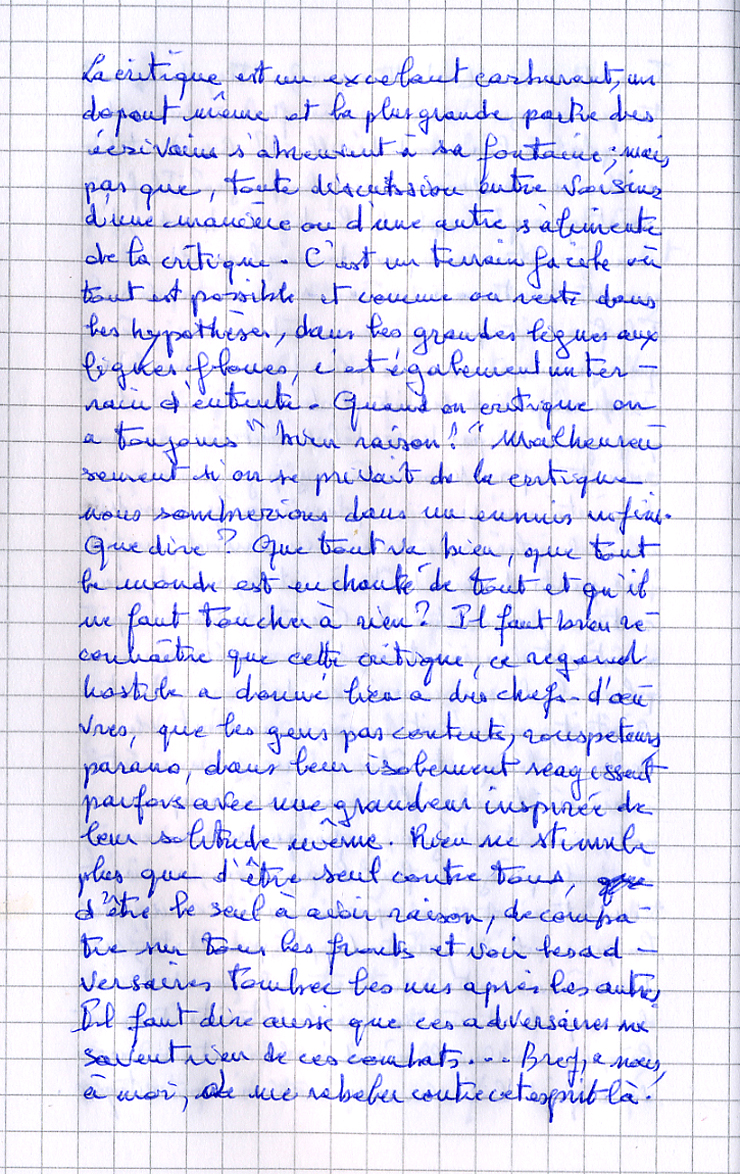 La critique est un excelant carburant, un
dopant même et la plus grande partie des
écrivains s'abreuvent à sa fontaine ; mais
pas que, toute discutssion entre voisins
d'une manière ou d'une autre s'alimente
de la critique. C'est un terrain facile où
tout est possible et comme on reste dans
les hypothèses, dans les grandes lignes aux
lignes floues, c'est également un ter-
rain d'entente. Quand on critique on
a toujours "bien raison!" Malheureu
sement si on se privait de la critique
nous sombrerions dans un ennuis infini.
Que dire ? Que tout va bien, que tout
le monde est enchanté de tout et qu'il
ne faut toucher à rien ? Il faut bien re-
connaître que cette critique, ce regard
hostile a donné lieu a des chefs-d'œu
vres, que les gens pas contents, rouspeteurs,
parano, dans leur isolement reagissent
parfois avec une grandeur inspirée de
leur solitude même. Rien ne stimule
plus que d'être seul contre tous,
d'être le seul à avoir raison, de comba-
tre sur tous les fronts et voir les ad-
versaires tomber les uns après les autres,
Il faut dire aussi que ces adversaires ne
savent rien de ces combats... Bref, a nous,
à moi, de me rebeler contre cet esprit là.